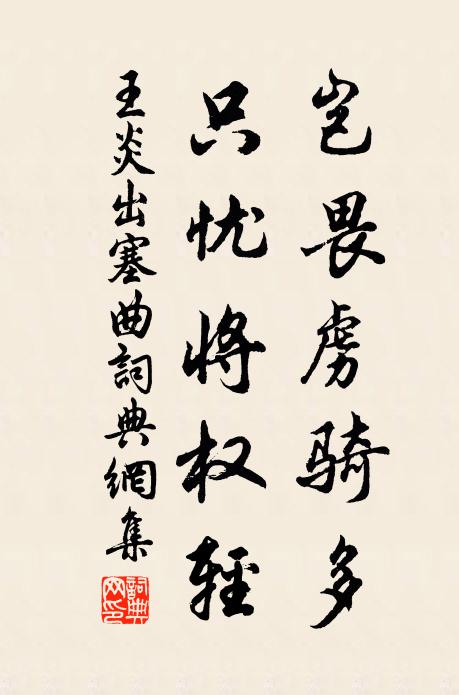 岂畏虏骑多
只忧将权轻
王炎出塞曲詞典網集
詞典網印